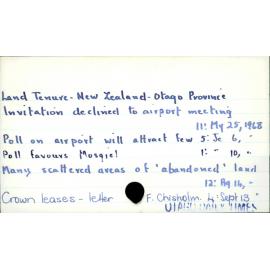 Land Tenure - New Zealand - Otago Province
Invitation declined to airport meeting
11: My 25, 1968
Poll on airport will attract few 5: Je 6, "
Poll favours Mosgiel 1: " 10, "
Many scattered areas of 'abandoned' land
12: Ag 14, "
Crown leases - letter F. Chisholm 4: Sept 13 "